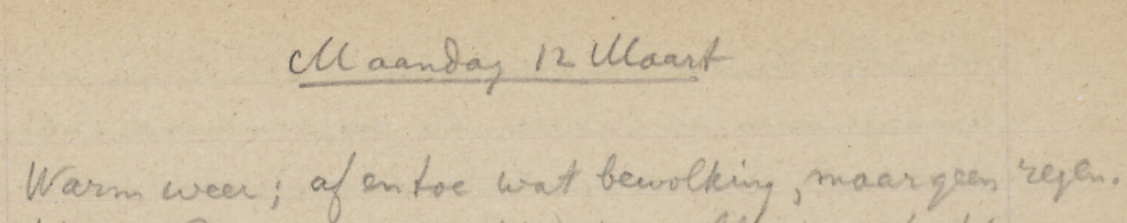 Maandag 12 Maart
Warm weer; af en toe wat bewolking, maar geen regen.